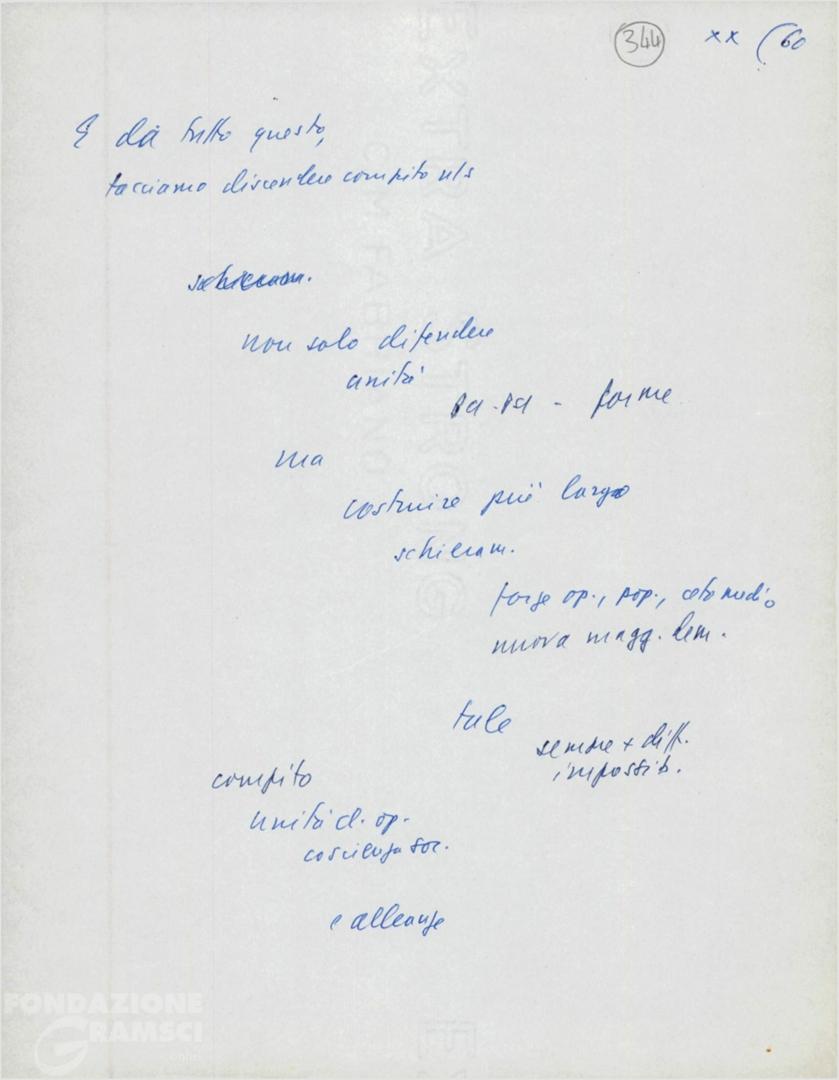 344 xx (60
E da tutto questo,
facciamo discendere compito n/s
schieram.
non solo difendere
unità
PCI-PSI - forme
ma
costruire più largo
schieram.
forze op., pop., ceto medio
nuova magg. dem.
tale
sempre + diff.
impossib.
compito
unità cl. op.
coscienza soc.
e alleanze
FONDAZIONE
GRAMSCI